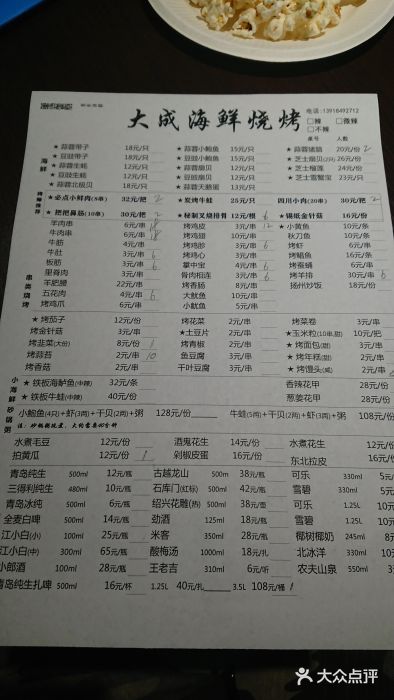 大成海鲜烧烤
电话:13918492712
□辣 □微辣
□不辣
桌号 人数
海鲜
★蒜蓉带子 18元/只 ★蒜蓉小鲍鱼 15元/只 ★蒜蓉猪脑 20元/份 2
★豆豉带子 18元/只 ★豆豉小鲍鱼 15元/只 ★芝士扇贝(2只) 26元/份
★蒜蓉生蚝 12元/只 ★蒜蓉扇贝 12元/只 ★芝士榴莲 24元/份
★豆豉生蚝 12元/只 ★豆豉扇贝 12元/只 ★芝士雪蟹宝 23元/只
★蒜蓉北极贝 12元/只 ★蒜蓉天鹅蛋 13元/只
★必点小鲜肉(8串) 32元/把 2 ★炭烤牛蛙 25元/只 四川小肉(20串) 30元/把 2
★把把鼻筋(10串) 30元/把 2 ★秘制叉烧排骨 12元/根 6 ★锡纸金针菇 16元/份
串类烧烤
羊肉串 6元/串 18 烤鸡皮 3元/串 12 ★小黄鱼 10元/条
牛肉串 6元/串 18 烤鸡翅 10元/串 秋刀鱼 10元/条
牛筋 4元/串 烤鸡胗 3元/串 6 烤虾 6元/串
牛肚 3元/串 6 烤鸡心 3元/串 烤鲳鱼 16元/条
板筋 3元/串 6 掌中宝 4元/串 6 烤蚕蛹 6元/串
里脊肉 3元/串 骨肉相连 3元/串 烤羊排 30元/串 6
羊肥腰 22元/串 烤香肠 8元/串 扬州炒饭 18元/份
五花肉 4元/串 6 大鱿鱼 10元/串
烤鸡爪 6元/串 小鱿鱼 5元/串
烤茄子 12元/份 烤花菜 2元/串 烤菜卷 3元/串
烤金针菇 3元/串 ★土豆片 2元/串 ★玉米粒(10串.甜) 10元/把
烤韭菜(大份) 8元/份 1 烤青椒 2元/串 ★烤面包(甜) 3元/串
烤蒜苔 2元/串 10 鱼豆腐 3元/串 ★烤年糕(甜) 2元/串
烤香菇 2元/串 干叶豆腐 3元/串 ★烤馒头(咸) 2元/串
小海鲜砂锅粥
★铁板海鲈鱼(中辣) 32元/条 香辣花甲 28元/份
★铁板牛蛙(中辣) 40元/份 葱姜花甲 28元/份
小鲍鱼(4只)+虾(3两)+干贝(2两)+粥 128元/份 牛蛙(5两)+干贝(2两)+虾(3两)+粥 108元/份
水煮毛豆 12元/份 酒鬼花生 14元/份 水煮花生 12元/份
拍黄瓜 12元/份 1 剁椒皮蛋 16元/份 东北拉皮 16元/份
青岛纯生 500ml 12元/瓶 古越龙山 500m 38元/瓶 可乐 330ml 5元
三得利纯生 480ml 10元/瓶 石库门(红标) 500ml 42元/瓶 雪碧 330ml 5元
青岛冰纯 500ml 6元/瓶 绍兴花雕(热) 500ml 38元/壶 可乐 1.25L 10元
全麦白啤 500ml 14元/瓶 劲酒 125ml 18元/瓶 雪碧 1.25L 10元
江小白(小) 100ml 25元/瓶 米客 350ml 28元/瓶 椰树椰奶 245ml 8元
江小白(中) 300ml 65元/瓶 酸梅汤 1000ml 18元/扎 北冰洋 330ml 10元
小郎酒 100ml 28元/瓶 王老吉 310ml 6元/听 农夫山泉 550ml 3元
青岛纯生扎啤 500ml 16元/杯 1.25L 40元/扎 3.5L 108元/桶 1
大众点评